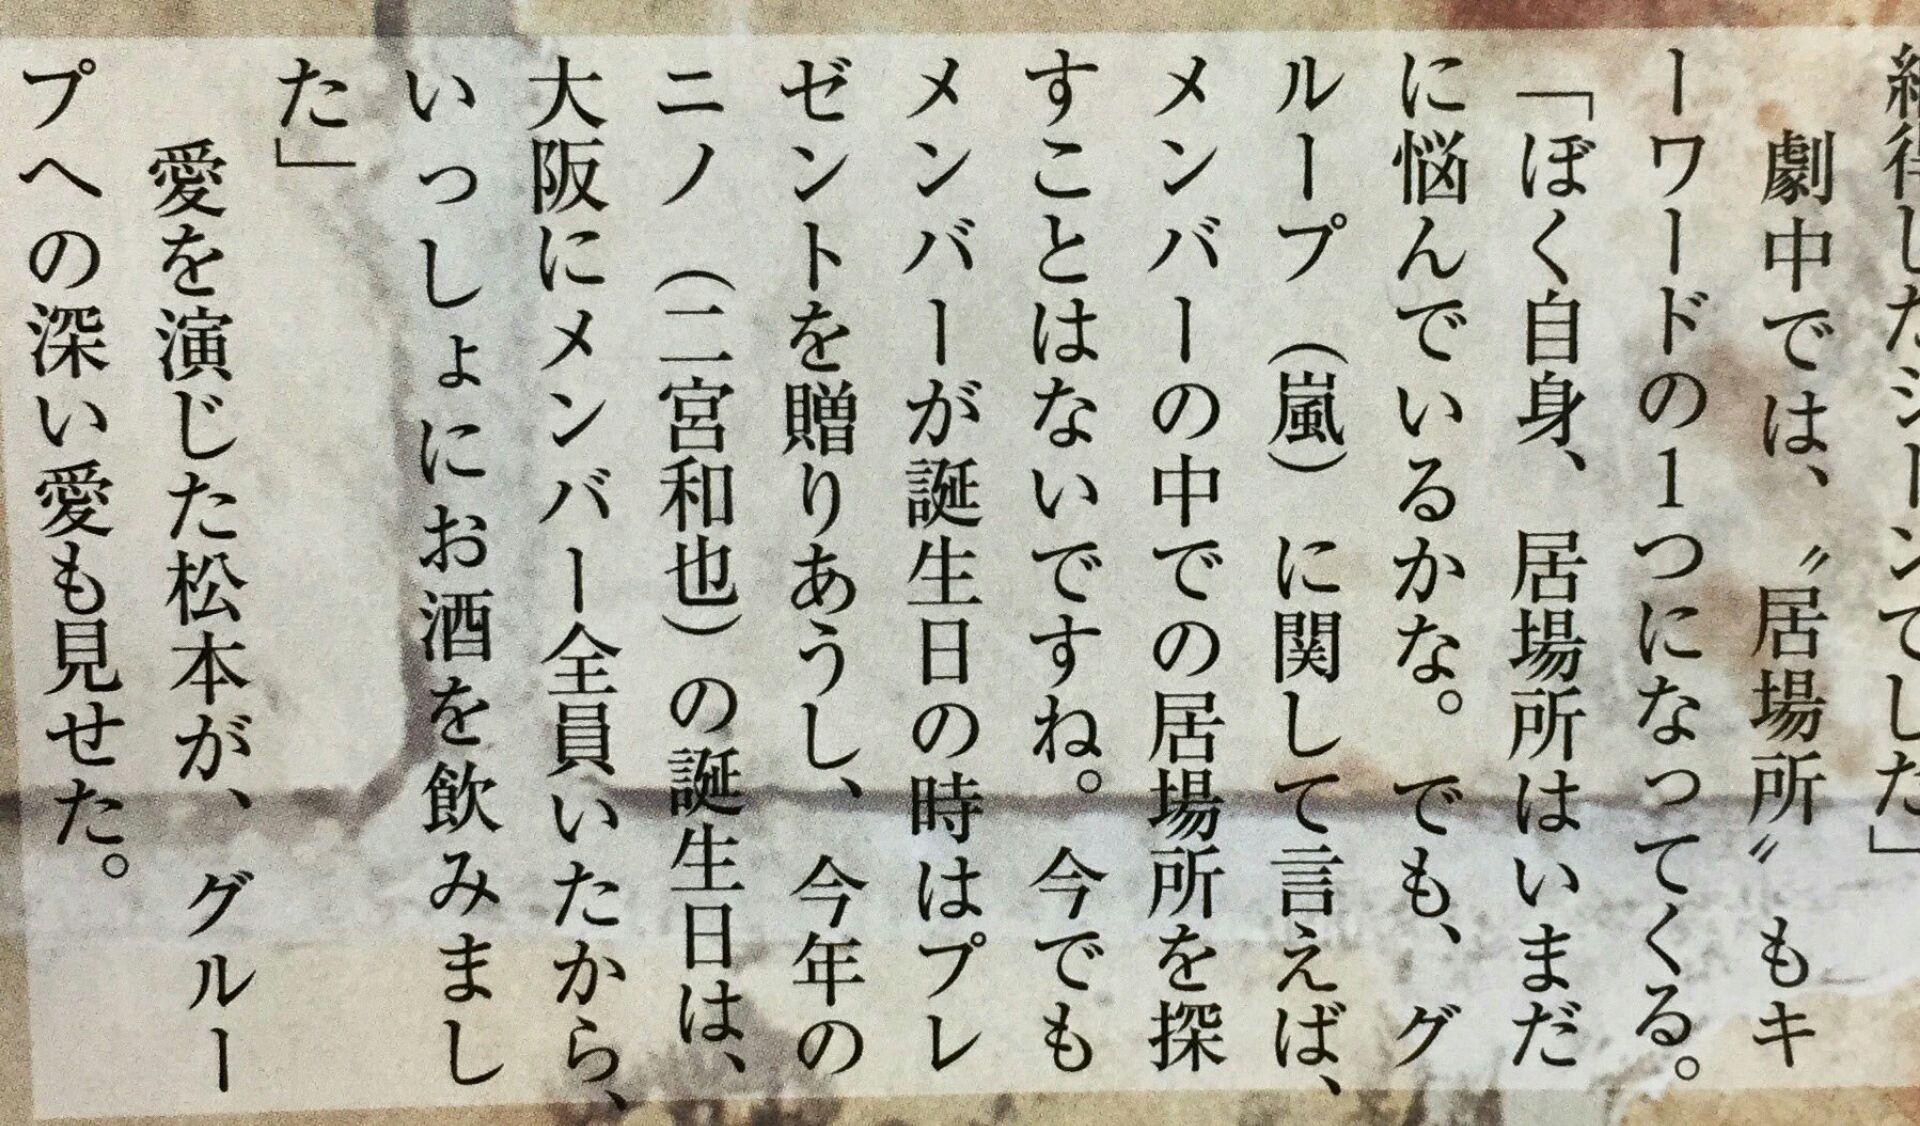 得したシーンでした」
劇中では、〝居場所〟もキ
ーワードの1つになってくる。
「ぼく自身、居場所はいまだ
に悩んでいるかな。でも、グ
ループ（嵐）に関して言えば、
メンバーの中での居場所を探
すことはないですね。今でも
メンバーが誕生日の時はプレ
ゼントを贈りあうし、今年の
ニノ（二宮和也）の誕生日は、
大阪にメンバー全員いたから、
いっしょにお酒を飲みまし
た」
愛を演じた松本が、グルー
プへの深い愛も見せた。